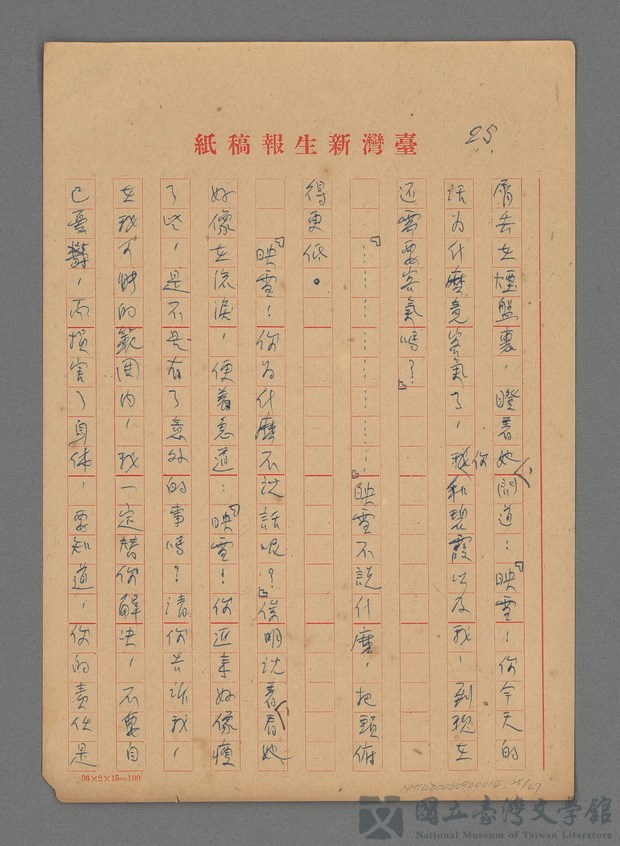 25
臺灣新生報稿紙
屑丢在煙盤裏，瞪着她問道：「映雪！你今天的
話为什麼竟客氣了，你和碧霞以及我，到現在
还需要客氣嗎？」
「………………………」映雪不說什麼，把頭俯
得更低。
「映雪！你为什麼不说話呢？」俊明沈着看她
好像在流淚，便着急道：「映雪！你近来好像瘦
了些，是不是有了意外的事嗎？请你告訴我，
在我可能的範囲内，我一定替你解决，不要自
己憂鬱，而損害了自体，要知道，你的責任是
36×2×15=100
國立臺灣文學館
National Museum of Taiwan Literature